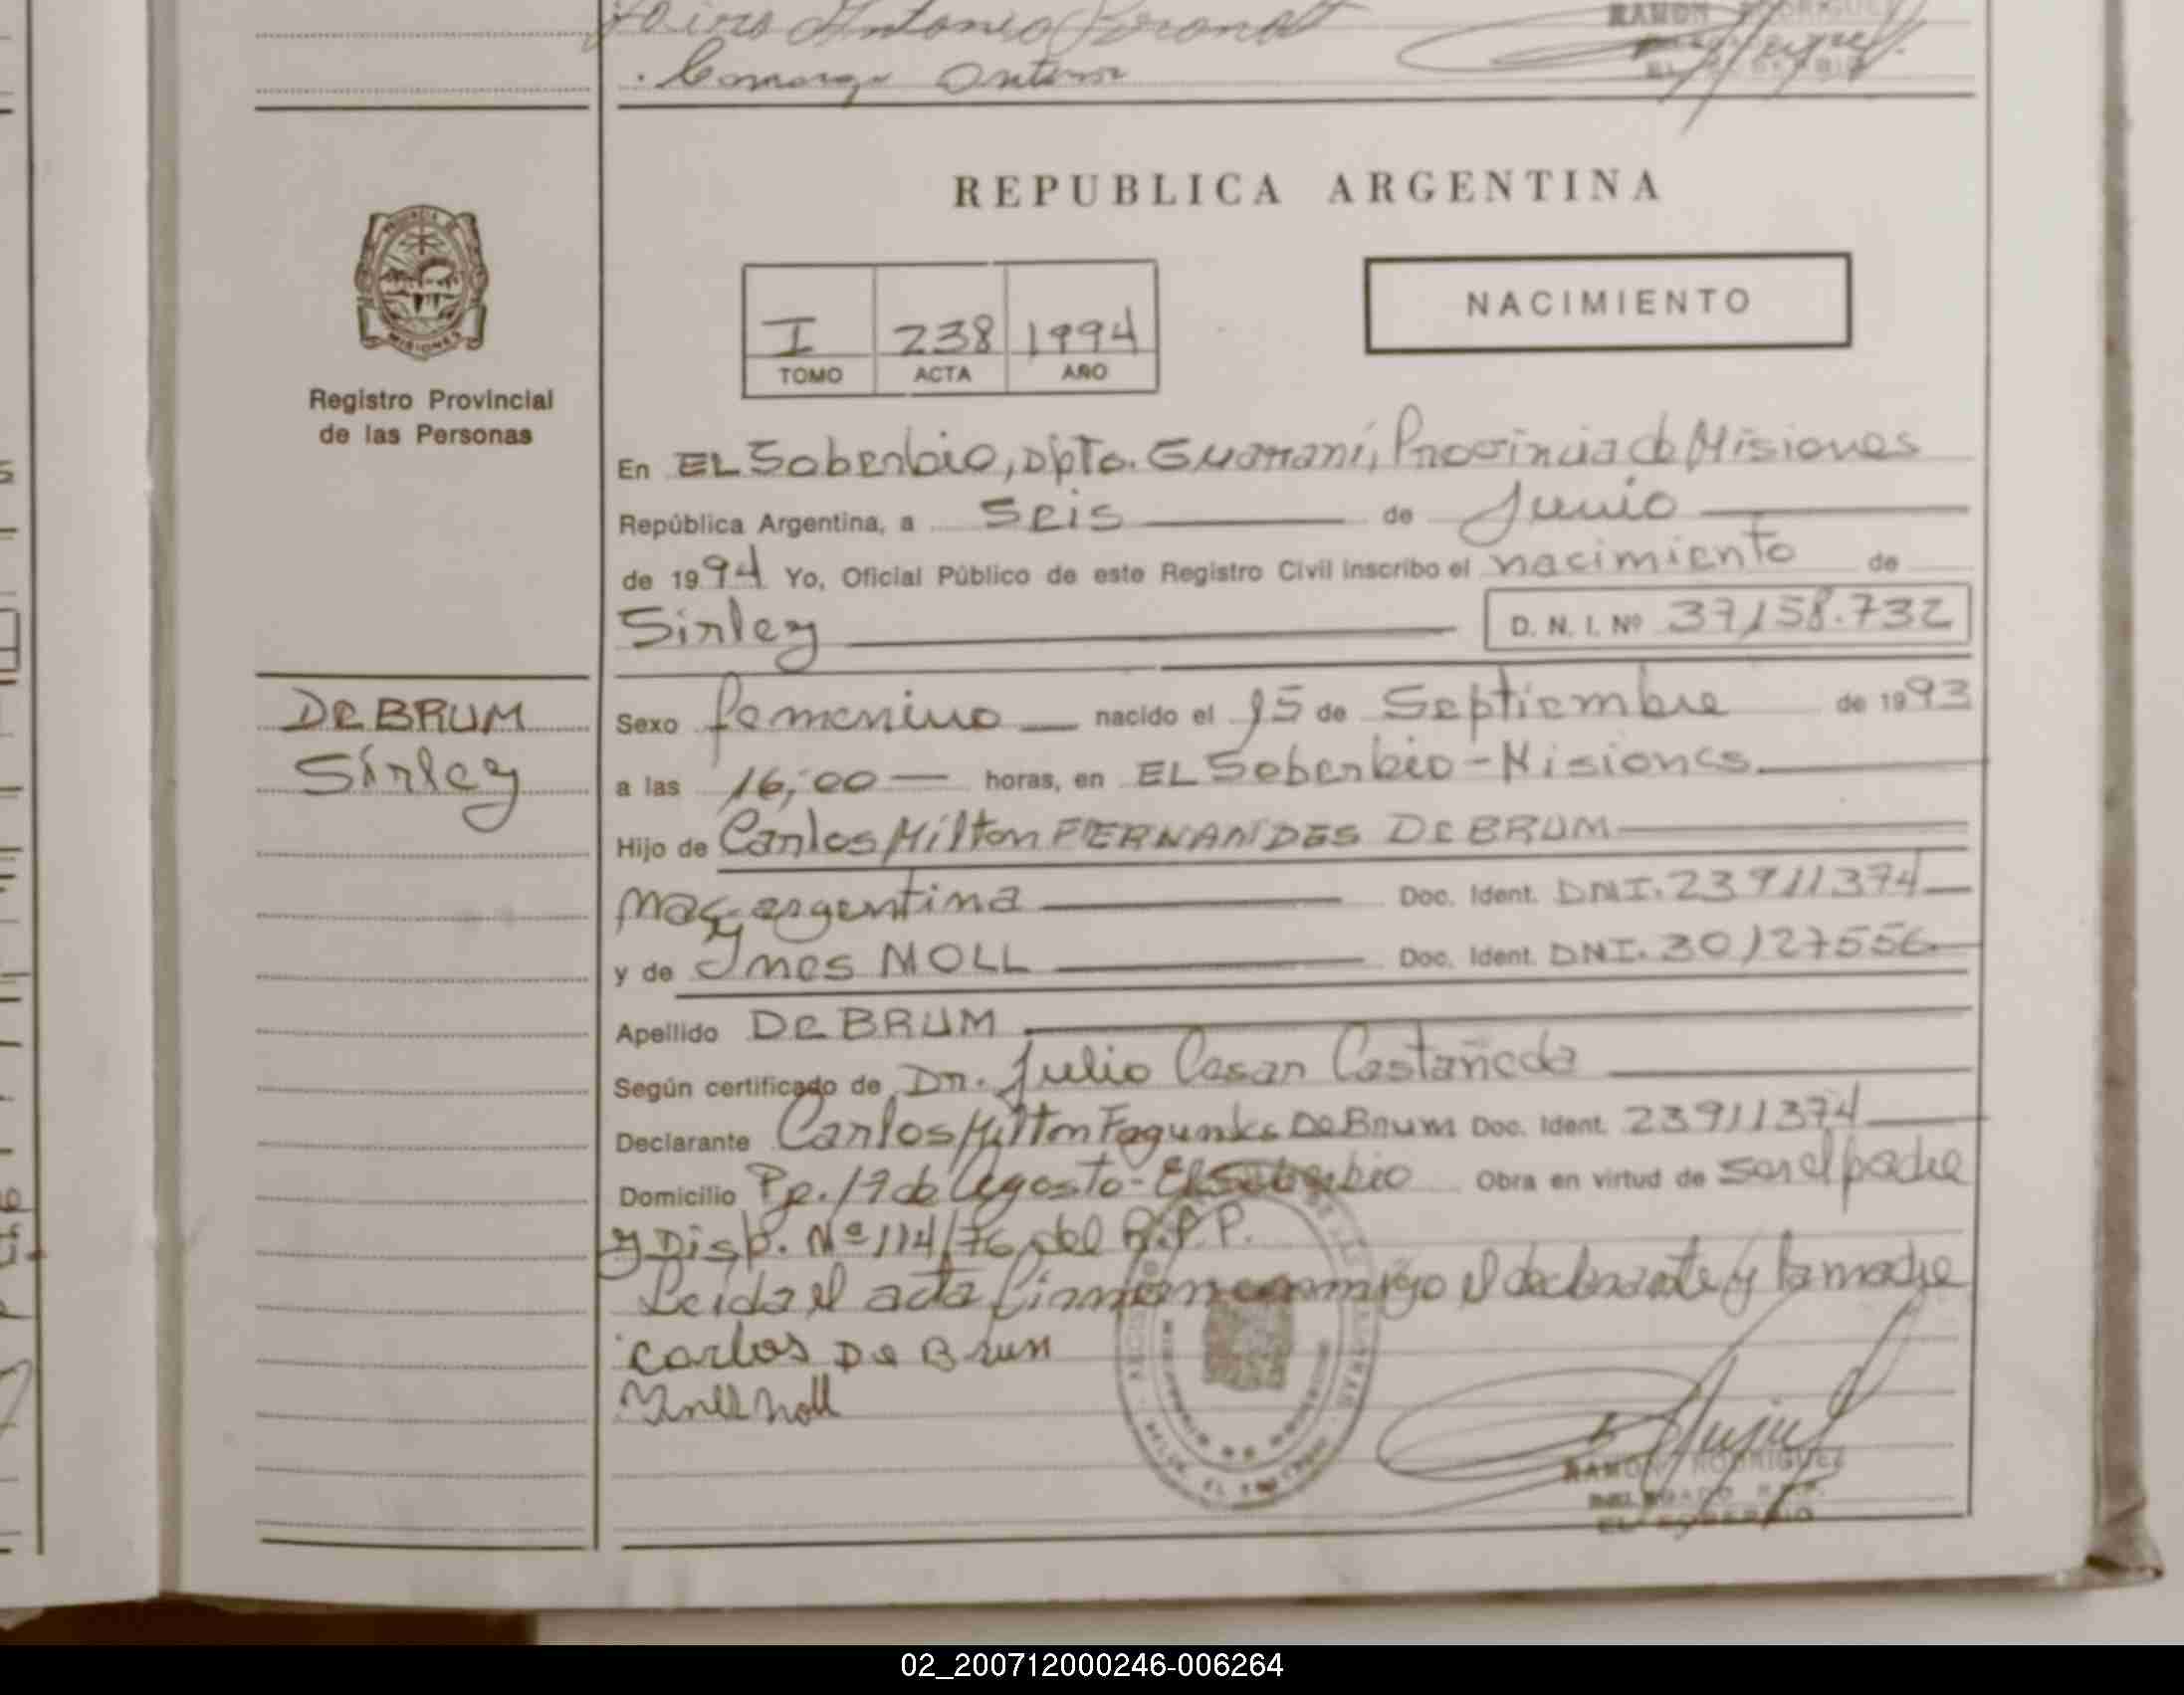 Antonio
Camargo Antonio
RAMON RODRIGUEZ
REPUBLICA ARGENTINA
NACIMIENTO
I 238 1994
TOMO ACTA AÑO
MISIONES
Registro Provincial
de las Personas
En EL Soberbio, Dpto. Guaraní, Provincia de Misiones
República Argentina, a Seis de Junio
de 1994 Yo, Oficial Público de este Registro Civil inscribo el nacimiento de
Sirley D. N. I. Nº 37158.732
DE BRUM
Sirley
Sexo femenino nacido el 15 de Septiembre de 1993
a las 16,00 horas, en EL Soberbio - Misiones
Hijo de Carlos Milton FERNANDES DE BRUM
nac. argentina Doc. Ident. DNI. 23911374
y de Ines MOLL Doc. Ident. DNI. 30127556
Apellido DE BRUM
Según certificado de Dr. Julio Cesar Castañeda
Declarante Carlos Milton Fagundes De Brum Doc. Ident. 23911374
Domicilio Pje. 17 de Agosto - El Soberbio Obra en virtud de ser el padre
y Disp. Nº 114/76 del R.P.P.
Leida el acta firman conmigo el declarante y la madre
Carlos De Brum
Ines Moll
RAMON RODRIGUEZ
DELEGADO R.P.P.
EL SOBERBIO
02_200712000246-006264